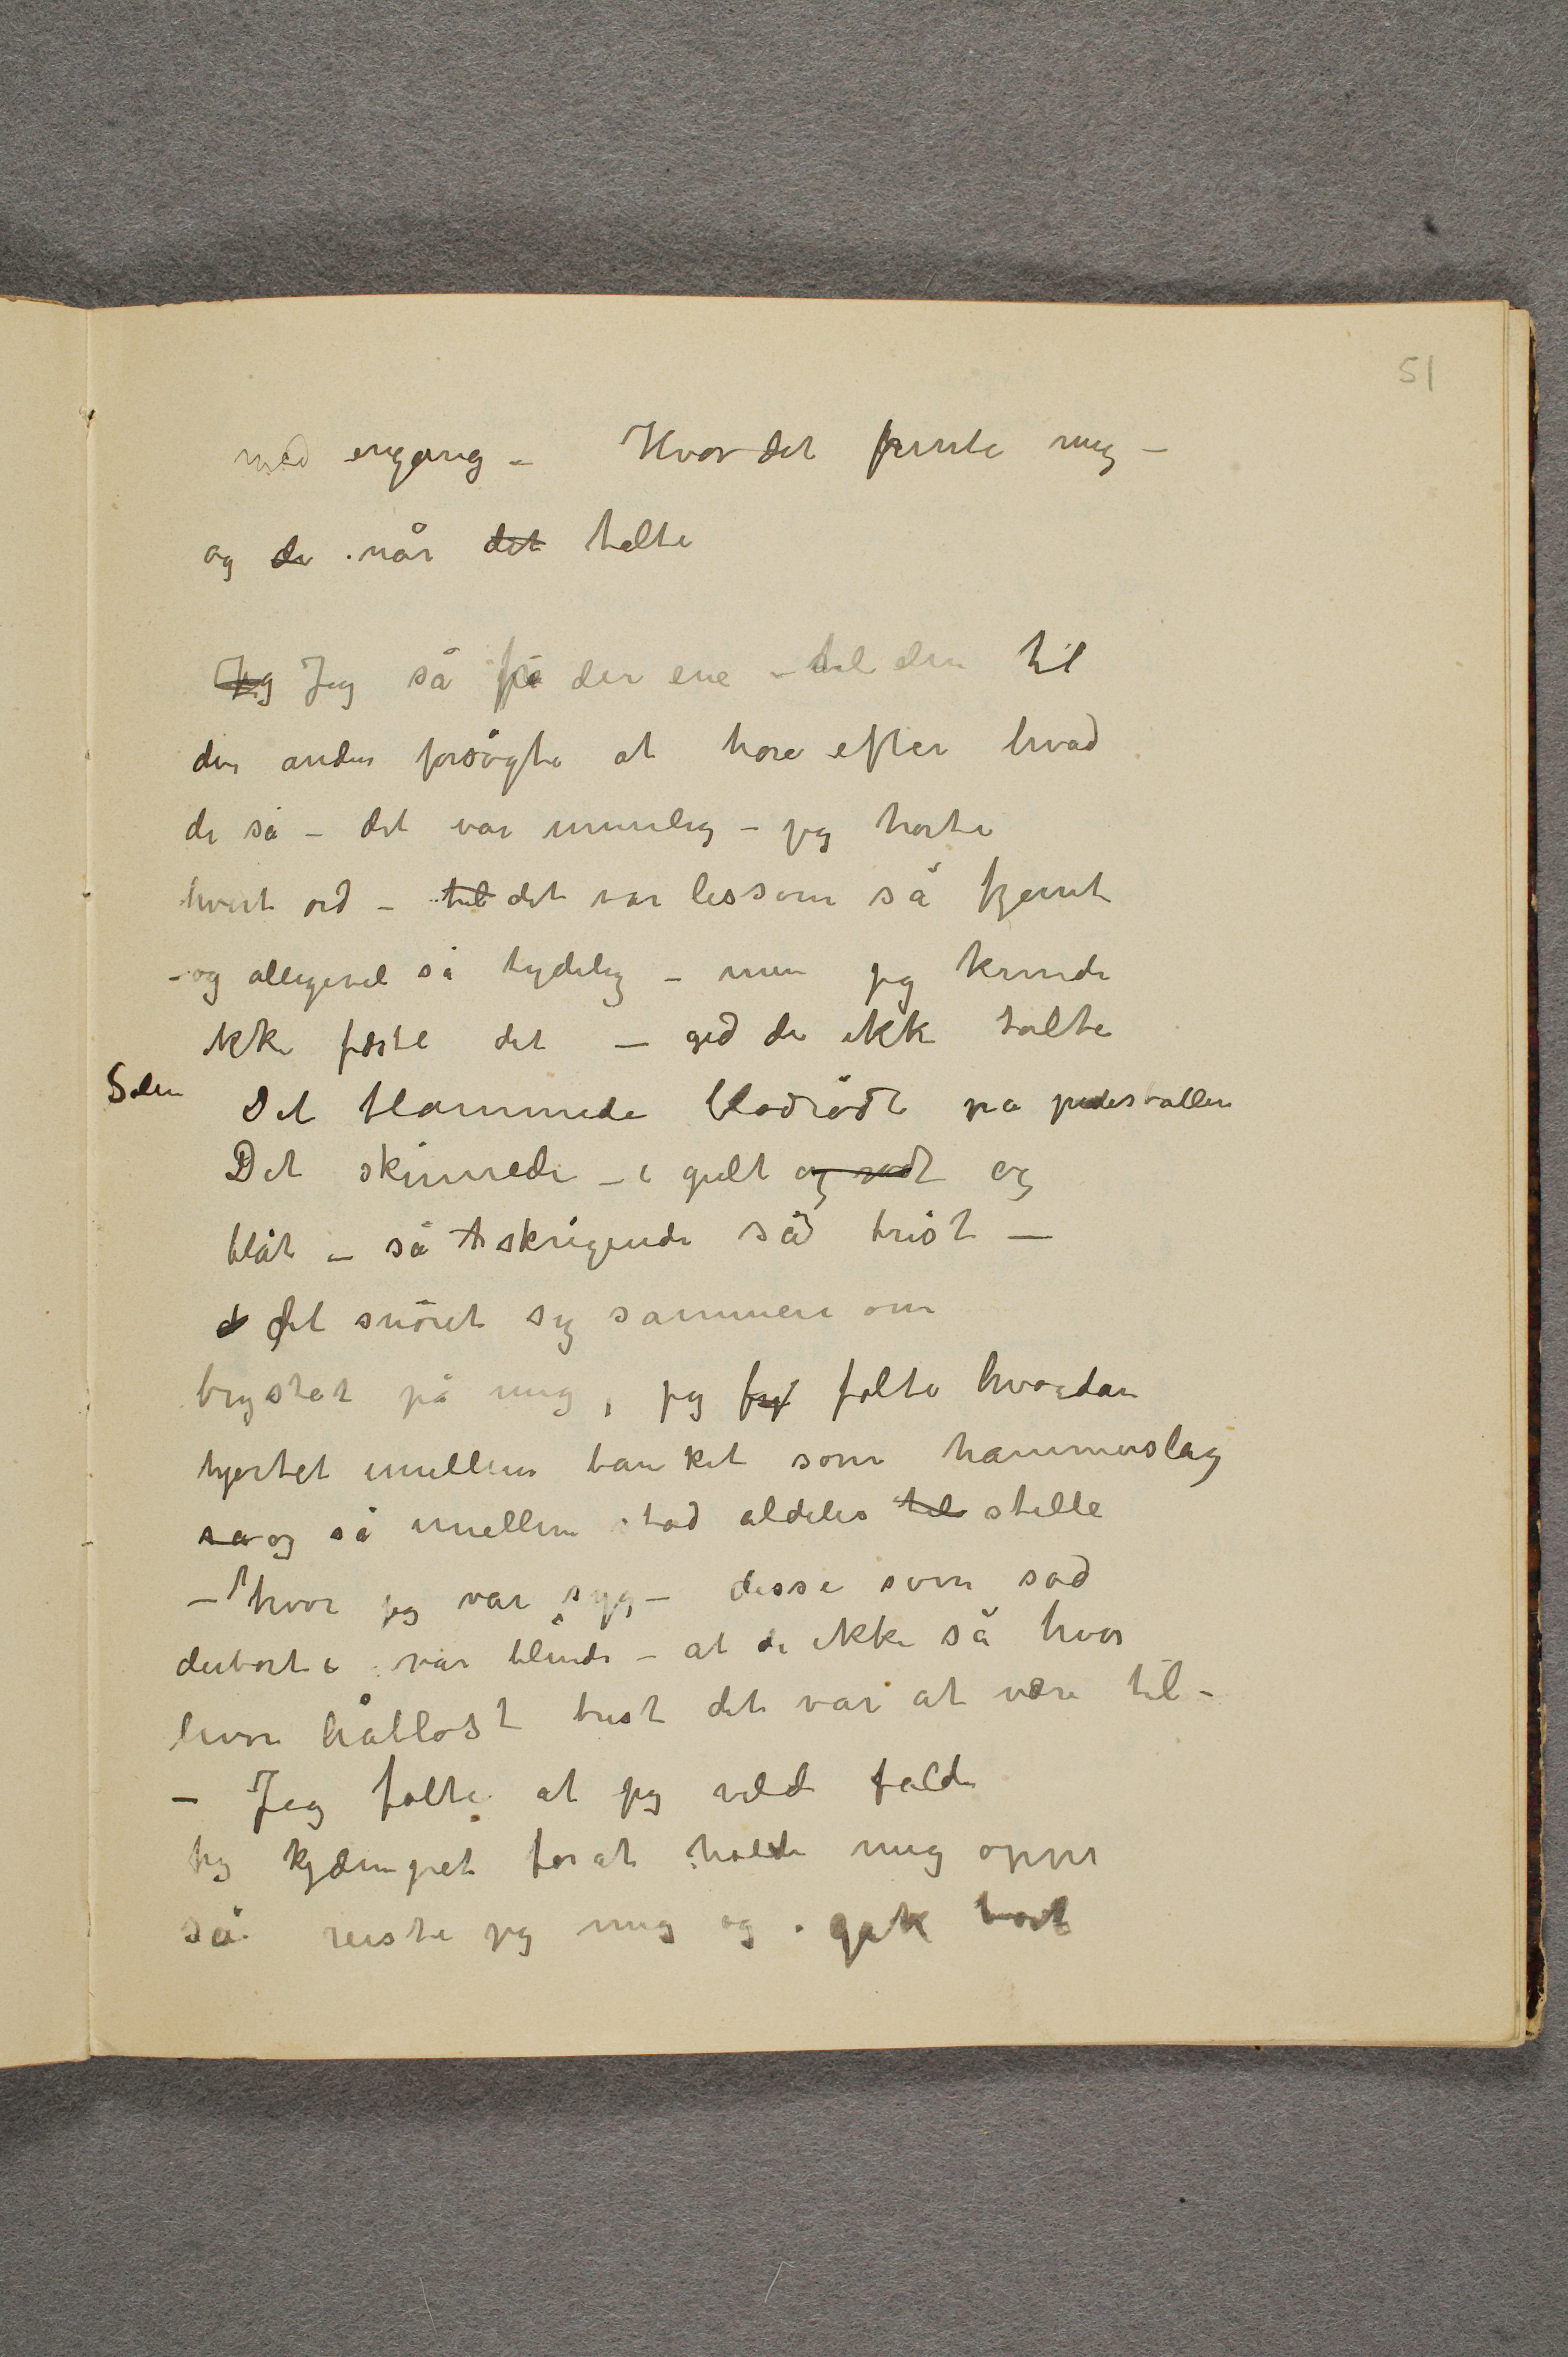 51
med engang – Hvor det pinte mig –
og de når det talte
Jeg Jeg så fra den ene – til den til
den anden forsøgte at høre efter hvad
de sa – det var umulig – jeg hørte
hvert ord – til det var lissom så fjernt
– og alligevel så tydelig – men jeg kunde
ikke fæste det – gid de ikk talte
Solen Det flammede blodrødt på pidestallen
Det skinnede – i gult og rødt og
blåt – så t skrigende så trist –
d det snøret sig sammen om
brystet på mig, jeg følte hvordan
hjertet imellem banket som hammerslag
sa og så imellem stod aldeles til stille
– hvor jeg var syg – disse som sad
derborte var blinde – at de ikke så hvor
hvor håbløst trist det var at være til –
– Jeg følte at jeg vilde falde
Jeg kjæmpet for at holde mig oppe
så reiste jeg mig og gik bort